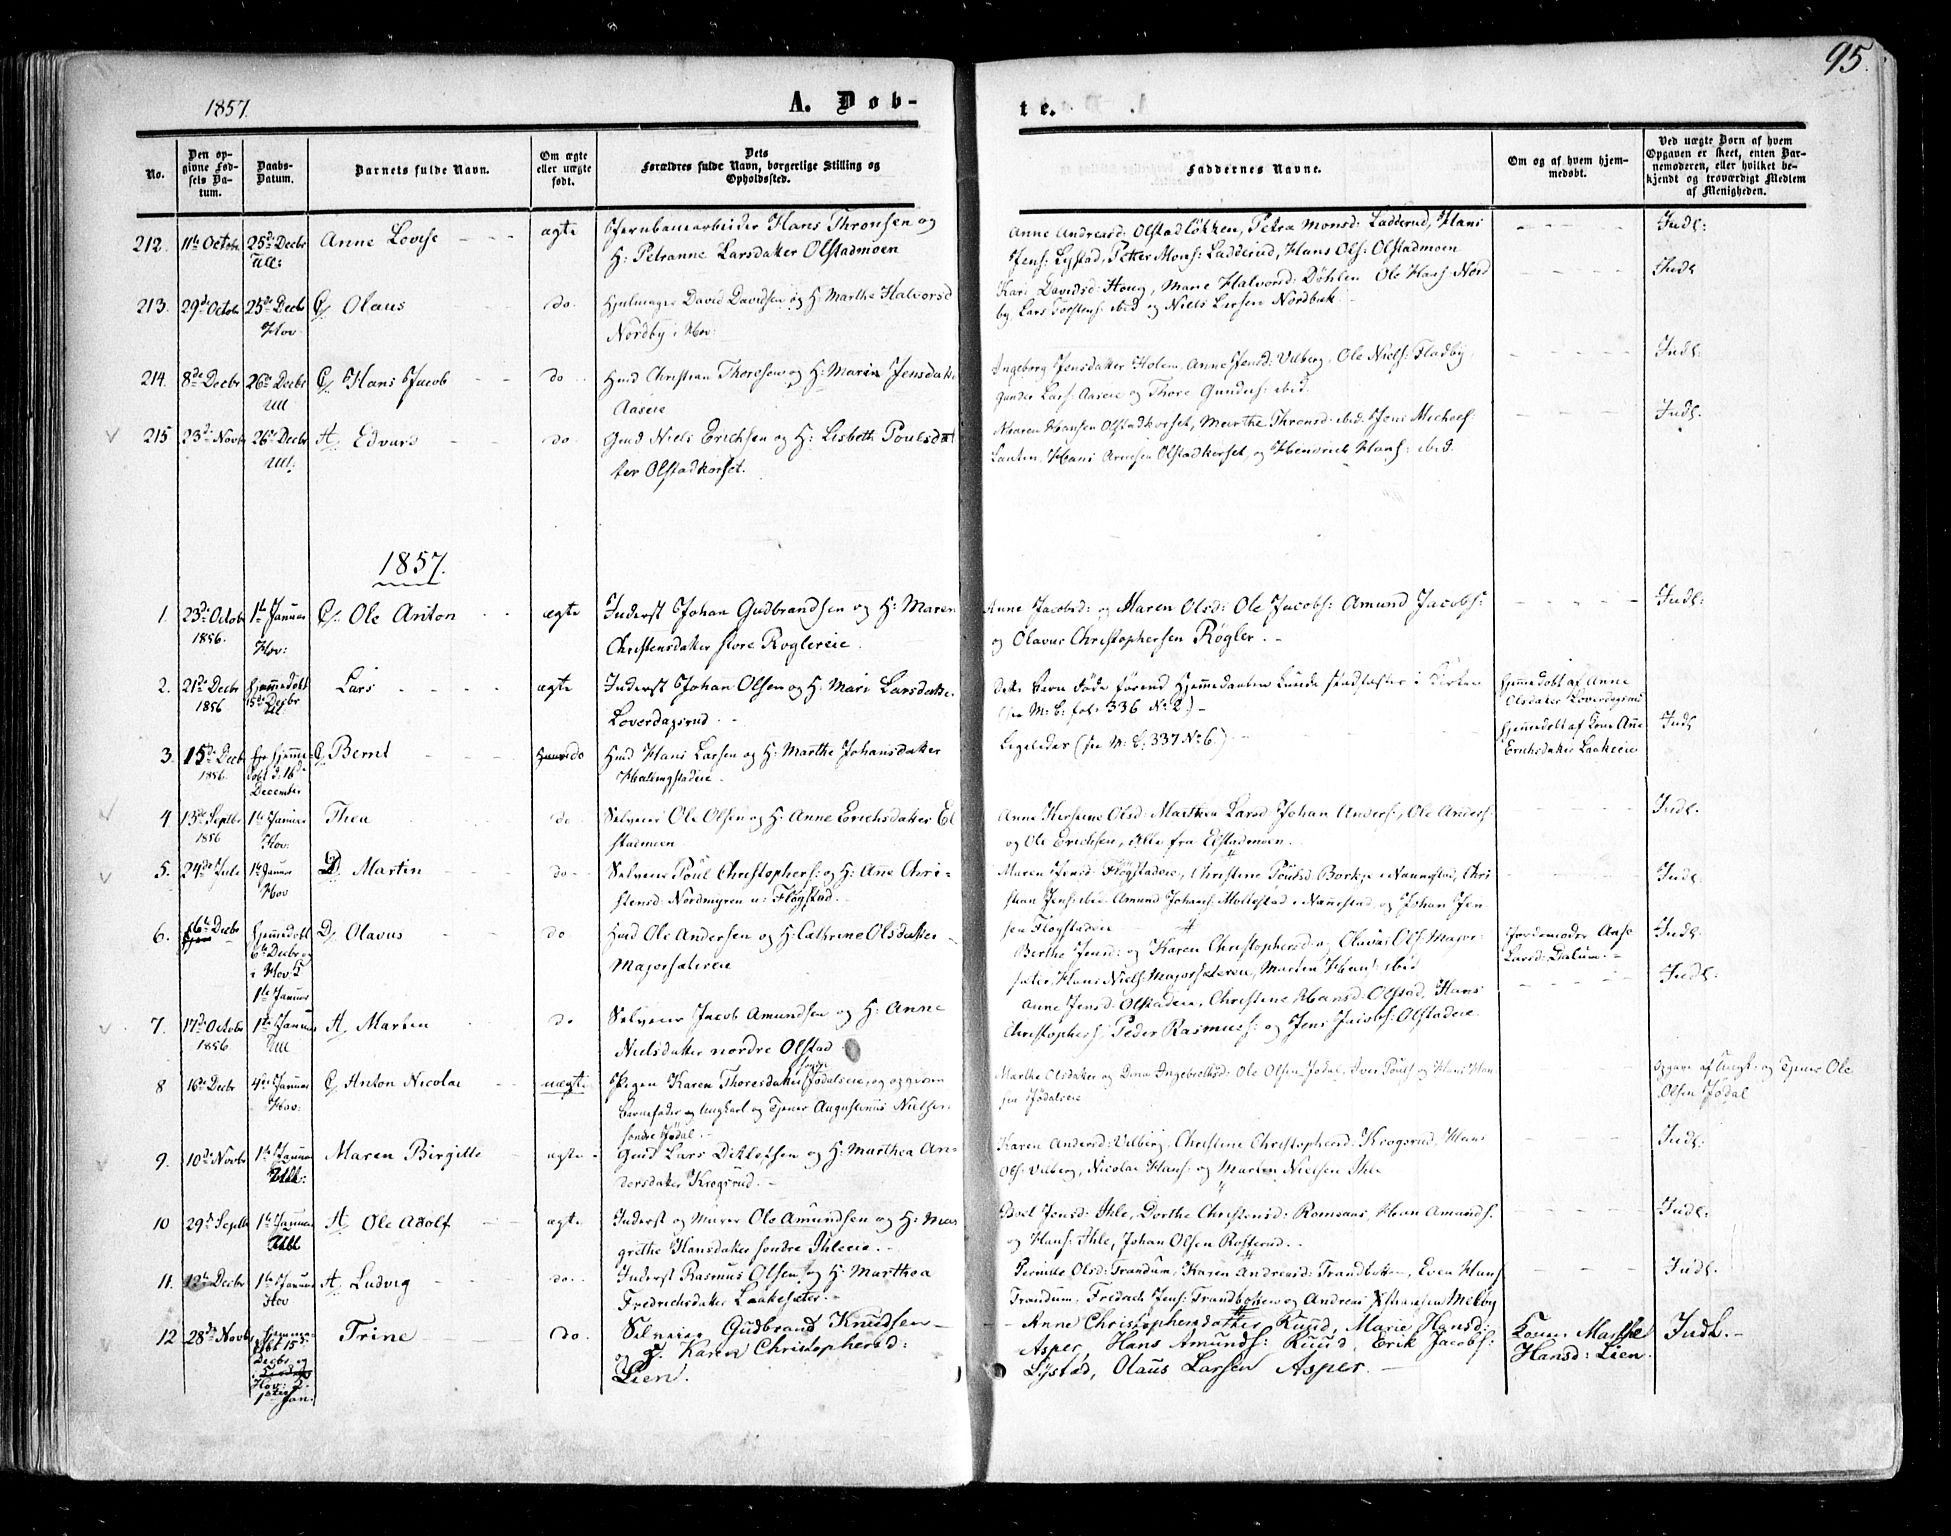 95.
1857.
A. Døb-
te.
No.
Den opgivne Fødsels Datum.
Daabs-Datum.
Barnets fulde Navn.
Om ægte eller uægte født.
Dets Forældres fulde Navn, borgerlige Stilling og Opholdssted.
Faddernes Navne.
Om og af hvem hjemmedøbt.
Ved uægte Børn af hvem Opgaven er skeet, enten Barnemoderen, eller hvilket bekjendt og troværdigt Medlem af Menigheden.
212. 11te Octobr 25de Decbr Ull: Anne Lovise ægte Jernbanearbeider Hans Thronsen og
H: Petranne Larsdatter Olstadmoen
Anne Andreasd: Olstadløkken, Petra Monsd: Ladderud, Hans
Jens: Lystad, Petter Mons: Ladderud, Hans Ols: Olstadmoen
Indl:
213. 29de Octobr 25de Decbr Hov Olaus do. Hjulmager David Davidsen og H: Marthe Halvorsd
Nordby i Hov:
Kari Davidsd: Houg, Marie Halvorsd: Døhlen Ole Hans: Nord
by, Lars Torstens: ibid og Niels Larsen Nordbæk
Indl
214. 8de Decbr 26de Decbr Ull Hans Jacob do Hmd Christian Thoresen og H: Maria Jensdatter
Aaseie
Ingeborg Jensdatter Holem, Anne Jensd: Velberg, Ole Niels: Fladby,
Gunder Lars: Aaseie og Thore Gunders: ibid.
Indl:
215 23de Novbr 26de Decbr Ull. A, Edvard do Gmd Niels Erichsen og H: Lisbeth Poulsdat
ter Olstadkorset.
Maren Hansen Olstadkorset, Marthe Thronsd: ibid: Jens Michels:
Hans Arnesen Olstadkorset, og Hendrik Hans: ibid.
Indl.
1857.
1. 23de Octobr 1856. 1te Januar Hov: Ole Anton ægte Inderst Johan Gudbrandsen og H: Maren
Christensdatter store Roglereie.
Anne Jacobsd: og Maren Olsd: Ole Jacobs: Amund Jacobs:
og Olavus Christophersen Røgler.
Indl:
2. 21de Decbr 1856 Hjemmedøbt Decbr Ull. Lars ægte Inderst Johan Olsen og H: Mari Larsdatter
Loverdagsrud
Dette Barn døde førend Hjemmedaaben kunde stadfæstes i Kirken
(see M: B: fol: 336 No 2.)
Hjemmedøbt af Anne
Olsdatter Loverdagsrud
3. 15de Decbr 1856. Hjemmedøbt d. 16de December Bernt do Hmd Hans Larsen og H: Marthe Johansdatter
Ligeledes (see M: B: 337 No 6.)
Hjemmedøbt af Kone Anne
Erichsdatter Laakeeie
Indl
4 13de Septbr 1856 1te Januar Hov: Thea do Selveier Ole Olsen og H: Anne Erichsdatter El
stadmoen
Anne Kerstine Olsd: Marthea Larsd Johan Anders:, Ole Anders:
og Ole Erichsen, Alle fra Elstadmoen.
Indl.
5. 24de Juli 1te Januar Hov D. Martin do Selveier Poul Christophers: og H: Anne Chri-
stensd: Nordmyren u: Fløgstad.
Maren Jensd: Fløgstadeie, Christine Poulsd Borkje i Nannestad, Chri
stian Jens: ibid. Amund Johans: Mollestad i Nannestad, og Johan Jen
sen Fløgstadeie
Indl.
6. 6te Decbr Hjemmedøbt 6te Decbr og i Hov 1te Januar D, Olavus do Hmd Ole Andersen og H: Cathrine Olsdatter
Majorsætereie
Berthe Jensd: og Karen Christophersd: og Olavus Ols: Major-
sæter, Hans Niels: Majorsætereie, Martin Hans: ibid
Jordemoder Anne
Larsd: Dalum.
Indl.
7. 17de Octobr 1856. 1te Januar Ull A, Marten do Selveier Jacob Amundsen og H: Anne
Nielsdatter nordre Olstad
Anne Jensd: Olstadeie, Christine Hansd: Olstad, Hans
Christophers:, Peder Rasmus: og Jens Jacobs: Olstadeie.
Indl.
8 16de Decbr 4de Januar Hov: Anton Nicolai uægte Pigen Karen Thoresdatter Jødalseie, og opgiven
Barnefader og Ungkarl og Tjener Augustinus Nielsen
søndre Jødal.
Marthe Olsdatter og Dina Ingebretsd: Ole Olsen Jødal, Iver Pouls: og Hans Han
sen Jødalseie
Opgave af Ungk: og Tjener Ole
Olsen Jødal
9. 10de Novbr 1te Januar Ull: Maren Birgitte ægte Gmd Lars Ditlefsen og H: Marthea An-
dersdatter Krogsrud.
Karen Andersd: Velberg, Christine Christophersd: Krogsrud, Hans
Ols: Velberg, Nicolai Hans: og Marten Nielsen Ihle
Indl:
10 29de Septbr 1te Januar Ull A, Ole Adolf ægte Inderst og Murer Ole Amundsen og H: Mar
grethe Hansdatter søndre Ihleeie.
Boel Jensd: Ihle, Dorthe Christensd: Romsaas, Hans Amunds:
og Hans: Ihle, Johan Olsen Rosterud.
Indl.
11. 12te Decbr 1te Januar Hov A, Ludvig do. Inderst Rasmus Olsen og H: Marthea
Fredrichsdatter Laakesæter.
Pernille Olsd: Trandum, Karen Andreasd: Trandbakken, Even Hans:
Trandum, Fredrich Jens: Trandbakken og Andreas Johansen Melby
Indl.
12 28de Novbr Hjemmedøbt 15de Decbr og i Hov: 1ste Jan. Trine do. Selveier Gudbrand Knudsen
og H. Karen Christophersd:
Lien.
Anne Christophersdatter Ruud, Marie Hansd:
Asper, Hans Amunds: Ruud, Erik Jacobs:
Lystad, Olaus Larsen Asper.
Konen Marthe
Hansd: Lien.
Indl.